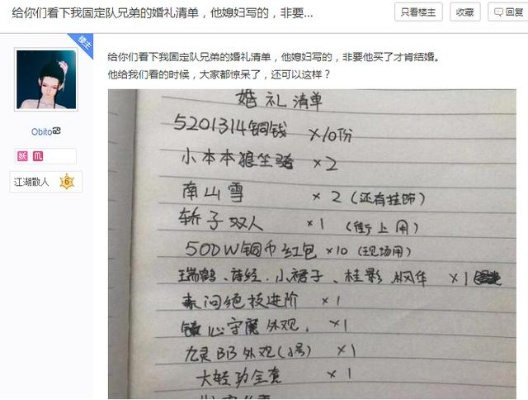 给你们看下我固定队兄弟的婚礼清单，他媳妇写的，非要...
只看楼主
收藏
回复
楼主
给你们看下我固定队兄弟的婚礼清单，他媳妇写的，非要他买了才肯结婚。
他给我们看的时候，大家都惊呆了，还可以这样？
Obito
江湖散人 6
婚礼清单
5201314铜钱 ×10份
小本本 坐骑 ×2
南山雪 ×2（还有挂饰）
轿子双人 ×1（街上用）
500W铜币红包 ×10（现场用）
瑞鹤、小裙子、桂影、枫华 ×1
素问绝技进阶 ×1
镇心守魔外观， ×1
九灵BB外观(2号) ×1
大轻功全套 ×1